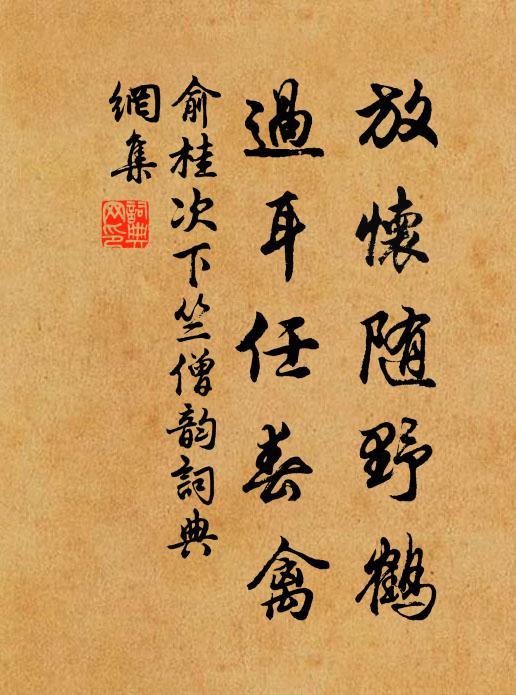 放懷随野鹤
過耳任春禽
俞桂次下竺僧韵詞典
網集
詞典网印